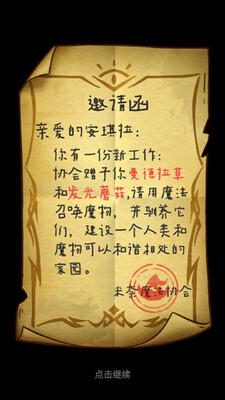 邀请函
亲爱的安琪拉:
你有一份新工作:
协会赠予你曼德拉草
和发光蘑菇,请用魔法
召唤魔物,并驯养它
们,建设一个人类和
魔物可以和谐相处的
家园。
米萘魔法协会
点击继续